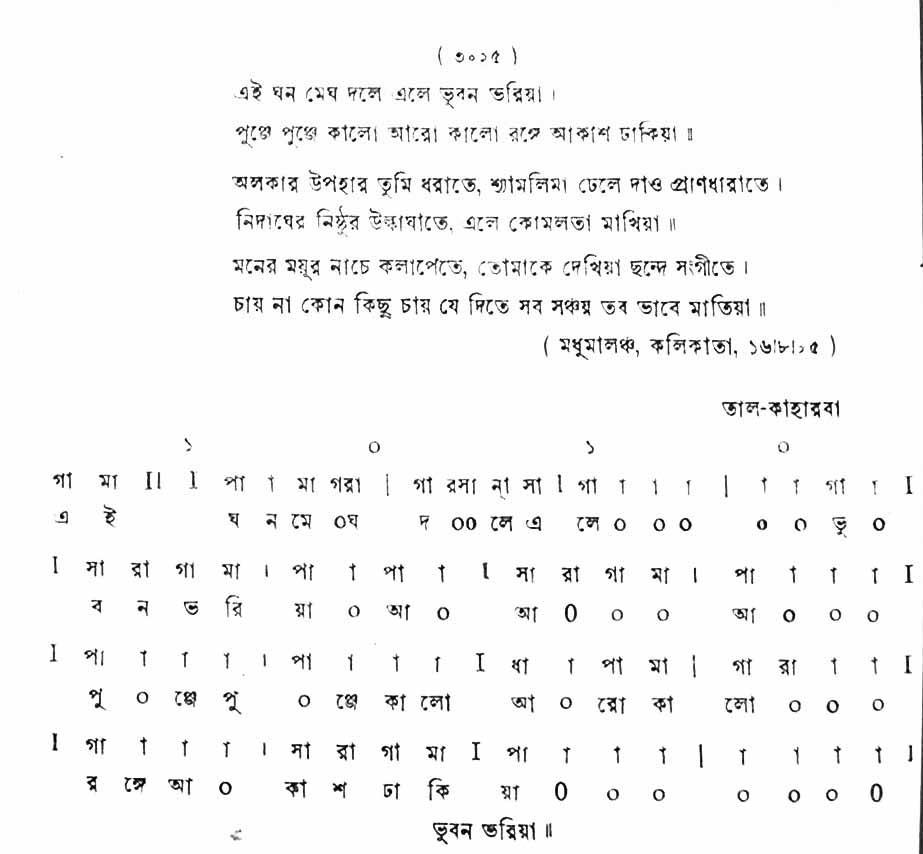 ( ৩০১৫ )
এই ঘন মেঘ দলে এলে ভুবন ভরিয়া ।
পুঞ্জে পুঞ্জে কালো আরো কালো রঙ্গে আকাশ ঢাকিয়া ॥
অলকার উপহার তুমি ধরাতে, শ্যামলিমা ঢেলে দাও প্রাণধারাতে ।
নিদাঘের নিষ্ঠুর উল্কাঘাতে, এলে কোমলতা মাখিয়া ॥
মনের ময়ূর নাচে কলাপেতে, তোমাকে দেখিয়া ছন্দে সংগীতে ।
চায় না কোন কিছু চায় যে দিতে সব সঞ্চয় তব ভাবে মাতিয়া ॥
( মধুমালঞ্চ, কলিকাতা, ১৬।৮।১৫ )
তাল-কাহারবা
১ ০ ১ ০
গা মা II I পা া মা গরা | গা রসা ন্া সা I গা া া া | া া গা া I
এ ই ঘ ন মে ০ঘ দ ০০ লে এ লে ০ ০ ০ ০ ০ ভু ০
I সা রা গা মা । পা া পা া I সা রা গা মা । পা া া া I
ব ন ভ রি য়া ০ আ ০ আ ০ ০ ০ আ ০ ০ ০
I পা া া া । পা া া া I ধা া পা মা | গা রা া া I
পু ০ ঞ্জে পু ০ ঞ্জে কা লো আ ০ রো কা লো ০ ০ ০
I গা া া া । সা রা গা মা I পা া া া | া া া া I
র ঙ্গে আ ০ কা শ ঢা কি য়া ০ ০ ০ ০ ০ ০ ০
ভুবন ভরিয়া ॥